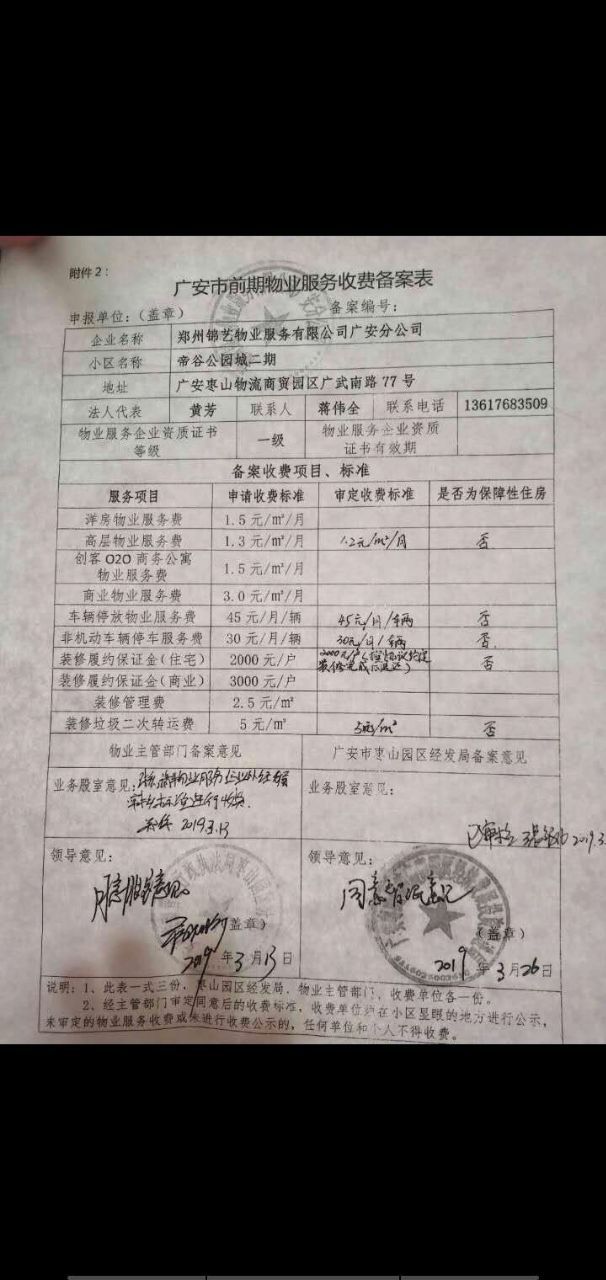 附件2：
广安市前期物业服务收费备案表
申报单位：（盖章） 备案编号：
企业名称 郑州锦艺物业服务有限公司广安分公司
小区名称 帝谷公园城二期
地址 广安枣山物流商贸园区广武南路77号
法人代表 黄芳 联系人 蒋伟全 联系电话 13617683509
物业服务企业资质证书等级 一级 物业服务企业资质证书有效期
备案收费项目、标准
服务项目 申请收费标准 审定收费标准 是否为保障性住房
洋房物业服务费 1.5元/m²/月
高层物业服务费 1.3元/m²/月 1.2元/m²/月 否
创客O2O商务公寓物业服务费 1.5元/m²/月
商业物业服务费 3.0元/m²/月
车辆停放物业服务费 45元/月/辆 45元/月/辆 否
非机动车辆停车服务费 30元/月/辆 30元/月/辆 否
装修履约保证金（住宅） 2000元/户 2000元/户 否
装修履约保证金（商业） 3000元/户
装修管理费 2.5元/m²
装修垃圾二次转运费 5元/m² 5元/m² 否
物业主管部门备案意见 广安市枣山园区经发局备案意见
业务股室意见： 业务股室意见：
2019.3.13
2019.3.
领导意见： 领导意见：
同意
（盖章） （盖章）
2019年3月13日 2019年3月26日
说明：1、此表一式三份，枣山园区经发局、物业主管部门、收费单位各一份。
2、经主管部门审定同意后的收费标准，收费单位约在小区显眼的地方进行公示，
未审定的物业服务收费或未进行收费公示的，任何单位和个人不得收费。